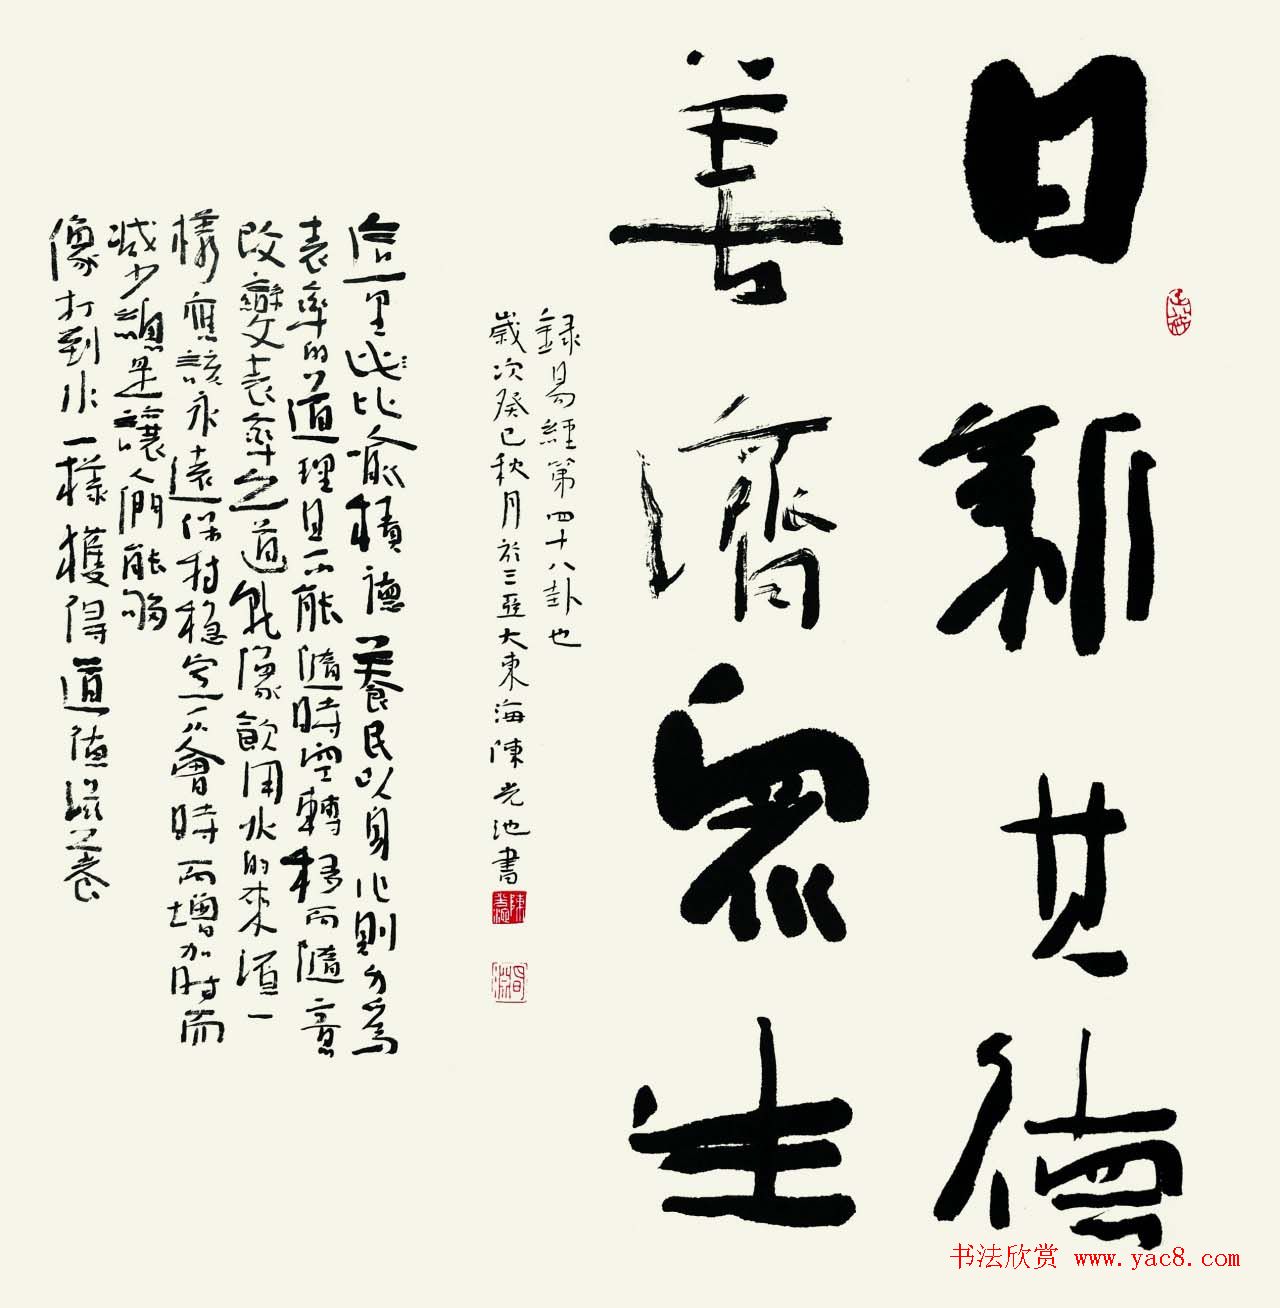 日新其德
善濟眾生
錄易經第四十八卦也
歲次癸巳秋月於三亞大東海陳光池書
這里比喻積德養民以身作則分為
表率的道理且不能隨時空轉移而隨意
改變表率之道就像飲用水的來源一
樣應該永遠保持穩定不會時而增加时而
减少總是讓人們能够
像打到水一樣獲得道德滋養
书法欣赏 www.yac8.com